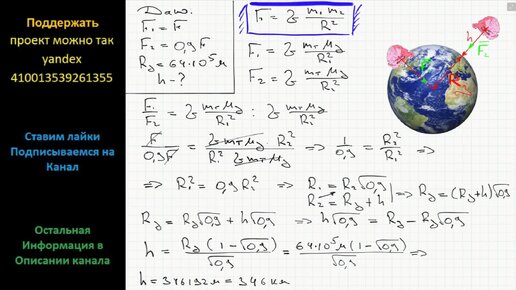 Поддержать
проект можно так
yandex
410013539261355
Ставим лайки
Подписываемся на
Канал
Остальная
Информация в
Описании канала
Дано:
F₁ = F
F₂ = 0,9F
Rз = 64·10⁵ м
h - ?
F = G m₁ m₂ / R²
F₁ = G mт Mз / R₁²
F₂ = G mт Mз / R₂²
F₁/F₂ = G mт Mз / R₁² : G mт Mз / R₂²
F/0,9F = G mт Mз R₂² / R₁² G mт Mз => 1/0,9 = R₂²/R₁² =>
=> R₁² = 0,9 R₂² => R₁ = R₂√0,9 => Rз = (Rз + h)√0,9
R₂ = Rз + h
Rз = Rз√0,9 + h√0,9 => h√0,9 = Rз - Rз√0,9
h = Rз (1 - √0,9) / √0,9 = 64·10⁵ м (1 - √0,9) / √0,9 =>
h = 346192 м = 346 км
F₂
h